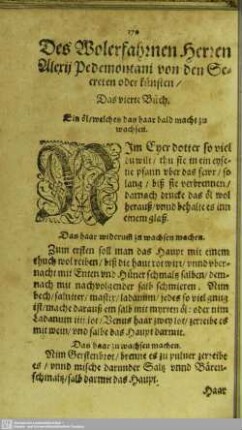 Des Wolerfahrnen Herren
Alexij Pedemontani von den Se-
creten oder künsten /
Das vierte Bůch.
Ein öl / welches das haar bald macht zu
wachsen.
NIm Eyer dotter so viel
du wilt / thu sie in ein eyse-
ne pfann vber das fewr / so
lang / biß sie verbrennen /
darnach drucke das öl wol
herauß / vnnd behalte es inn
einem glaß.
Das haar widerumb zu wachsen machen.
Zum ersten soll man das Haupt mit einem
thuch wol reiben / biß die haut rot wirt / vnnd
nach mit Enten vnd Hüner schmaltz salben / dem-
nach mit nachvolgender salb schmieren. Nim
bech / mastix / ladanum / jedes so viel gnug
ist / mache darauß ein salb mit myrten öl: oder nim
Ladanum Venus haar zwey lot / zerreibe es
mit wein / vnd salbe das Haupt darmit.
Das haar zu wachsen machen.
Nim Gerstenbrot / brenne es zu puluer zerreibe
es / vnnd mische darunder Saltz vnnd Bären-
schmaltz / salb darmit das Haupt.
Haar